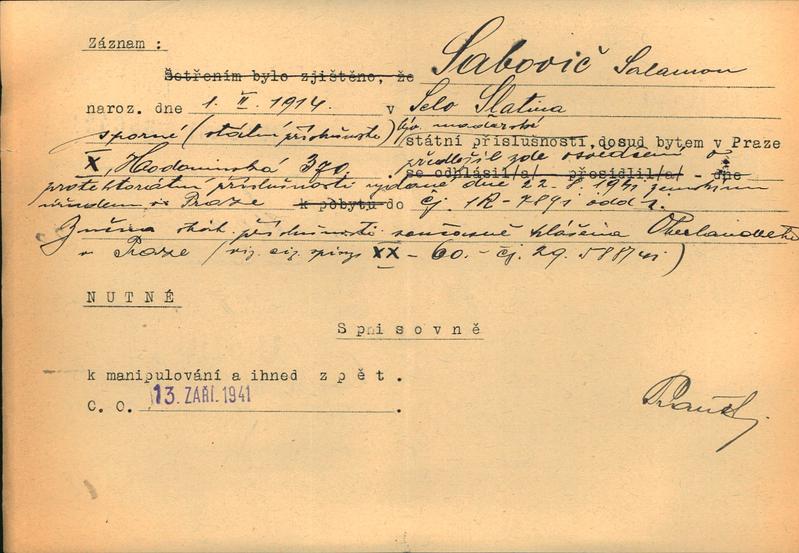 Záznam :
Šetřením bylo zjištěno, že Sabovič Salamon
naroz. dne 1. II. 1914. v Selo Slatina
sporné (státní příslušnosti) býv. maďarské
státní příslušnosti, dosud bytem v Praze
X, Hodonínská 390. předložil zde osvědčení o
se odhlásil/a/ - přesídlil/a/ - dne
protektorátní příslušnosti vydané dne 22.8.1941 zemským
úřadem v Praze k pobytu do čj 1R-7891 odd 2.
Změna stát. příslušnosti současně hlášena Oberlandratu
v Praze (viz. ciz. spisy XX - 60. - čj. 29.588/41)
NUTNÉ
Spisovně
k manipulování a ihned zpět.
C. O. 13. ZÁŘÍ. 1941 .